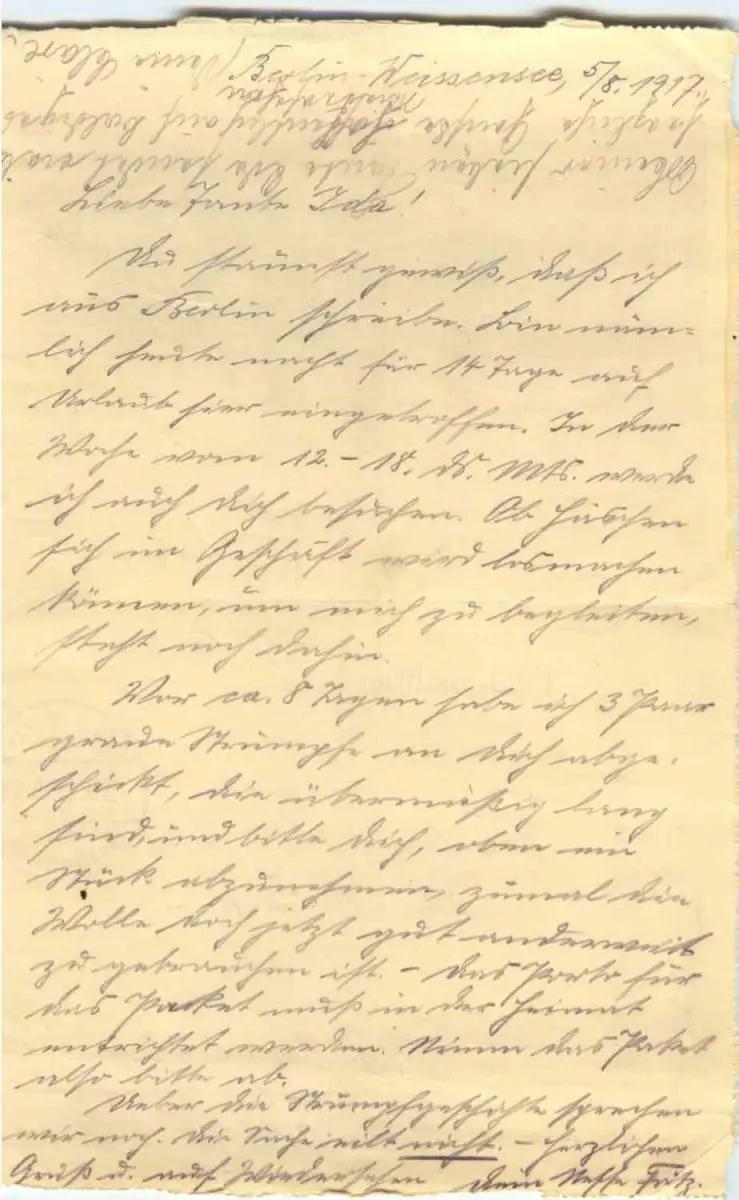 Berlin-Weissensee, 5/8. 1917.
Liebe Tante Ida!
Du staunst gewiß, daß ich
aus Berlin schreibe. Bin näm-
lich heute nacht für 14 Tage auf
Urlaub hier eingetroffen. In der
Woche vom 12.-18. ds. Mts. werde
ich auch Dich besuchen. Ob Häschen
sich im Geschäft wird losmachen
können, um mich zu begleiten,
steht noch dahin.
Vor ca. 8 Tagen habe ich 3 Paar
graue Strümpfe an Dich abge-
schickt, die übermäßig lang
sind, und bitte Dich, oben ein
Stück abzunehmen, zumal die
Wolle doch jetzt gut anderweit
zu gebrauchen ist. - Das Porto für
das Packet muß in der Heimat
entrichtet werden. Nimm das Paket
also bitte ab.
Ueber die Strumpfgeschichte sprechen
wir noch. Die Sache eilt nicht. - Herzlichen
Gruß u. auf Wiedersehen Dein Neffe Fritz.
Meiner lieben Tante Ida sendet
herzliche Grüße auf baldiges
Deine Clare.